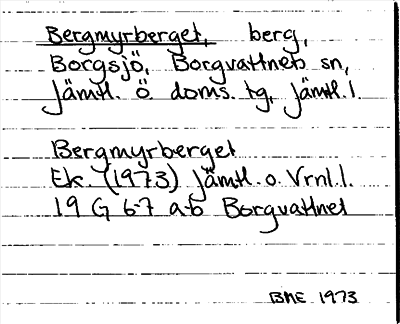 Bergmyrberget, berg,
Borgsjö, Borgvattneb sn,
Jämtl. ö. doms. tg, Jämtl. l.
Bergmyrberget
Ek. (1973) Jämtl. o. Vrnl. l.
19 G 6-7 a-b Borgvattnet
BME 1973